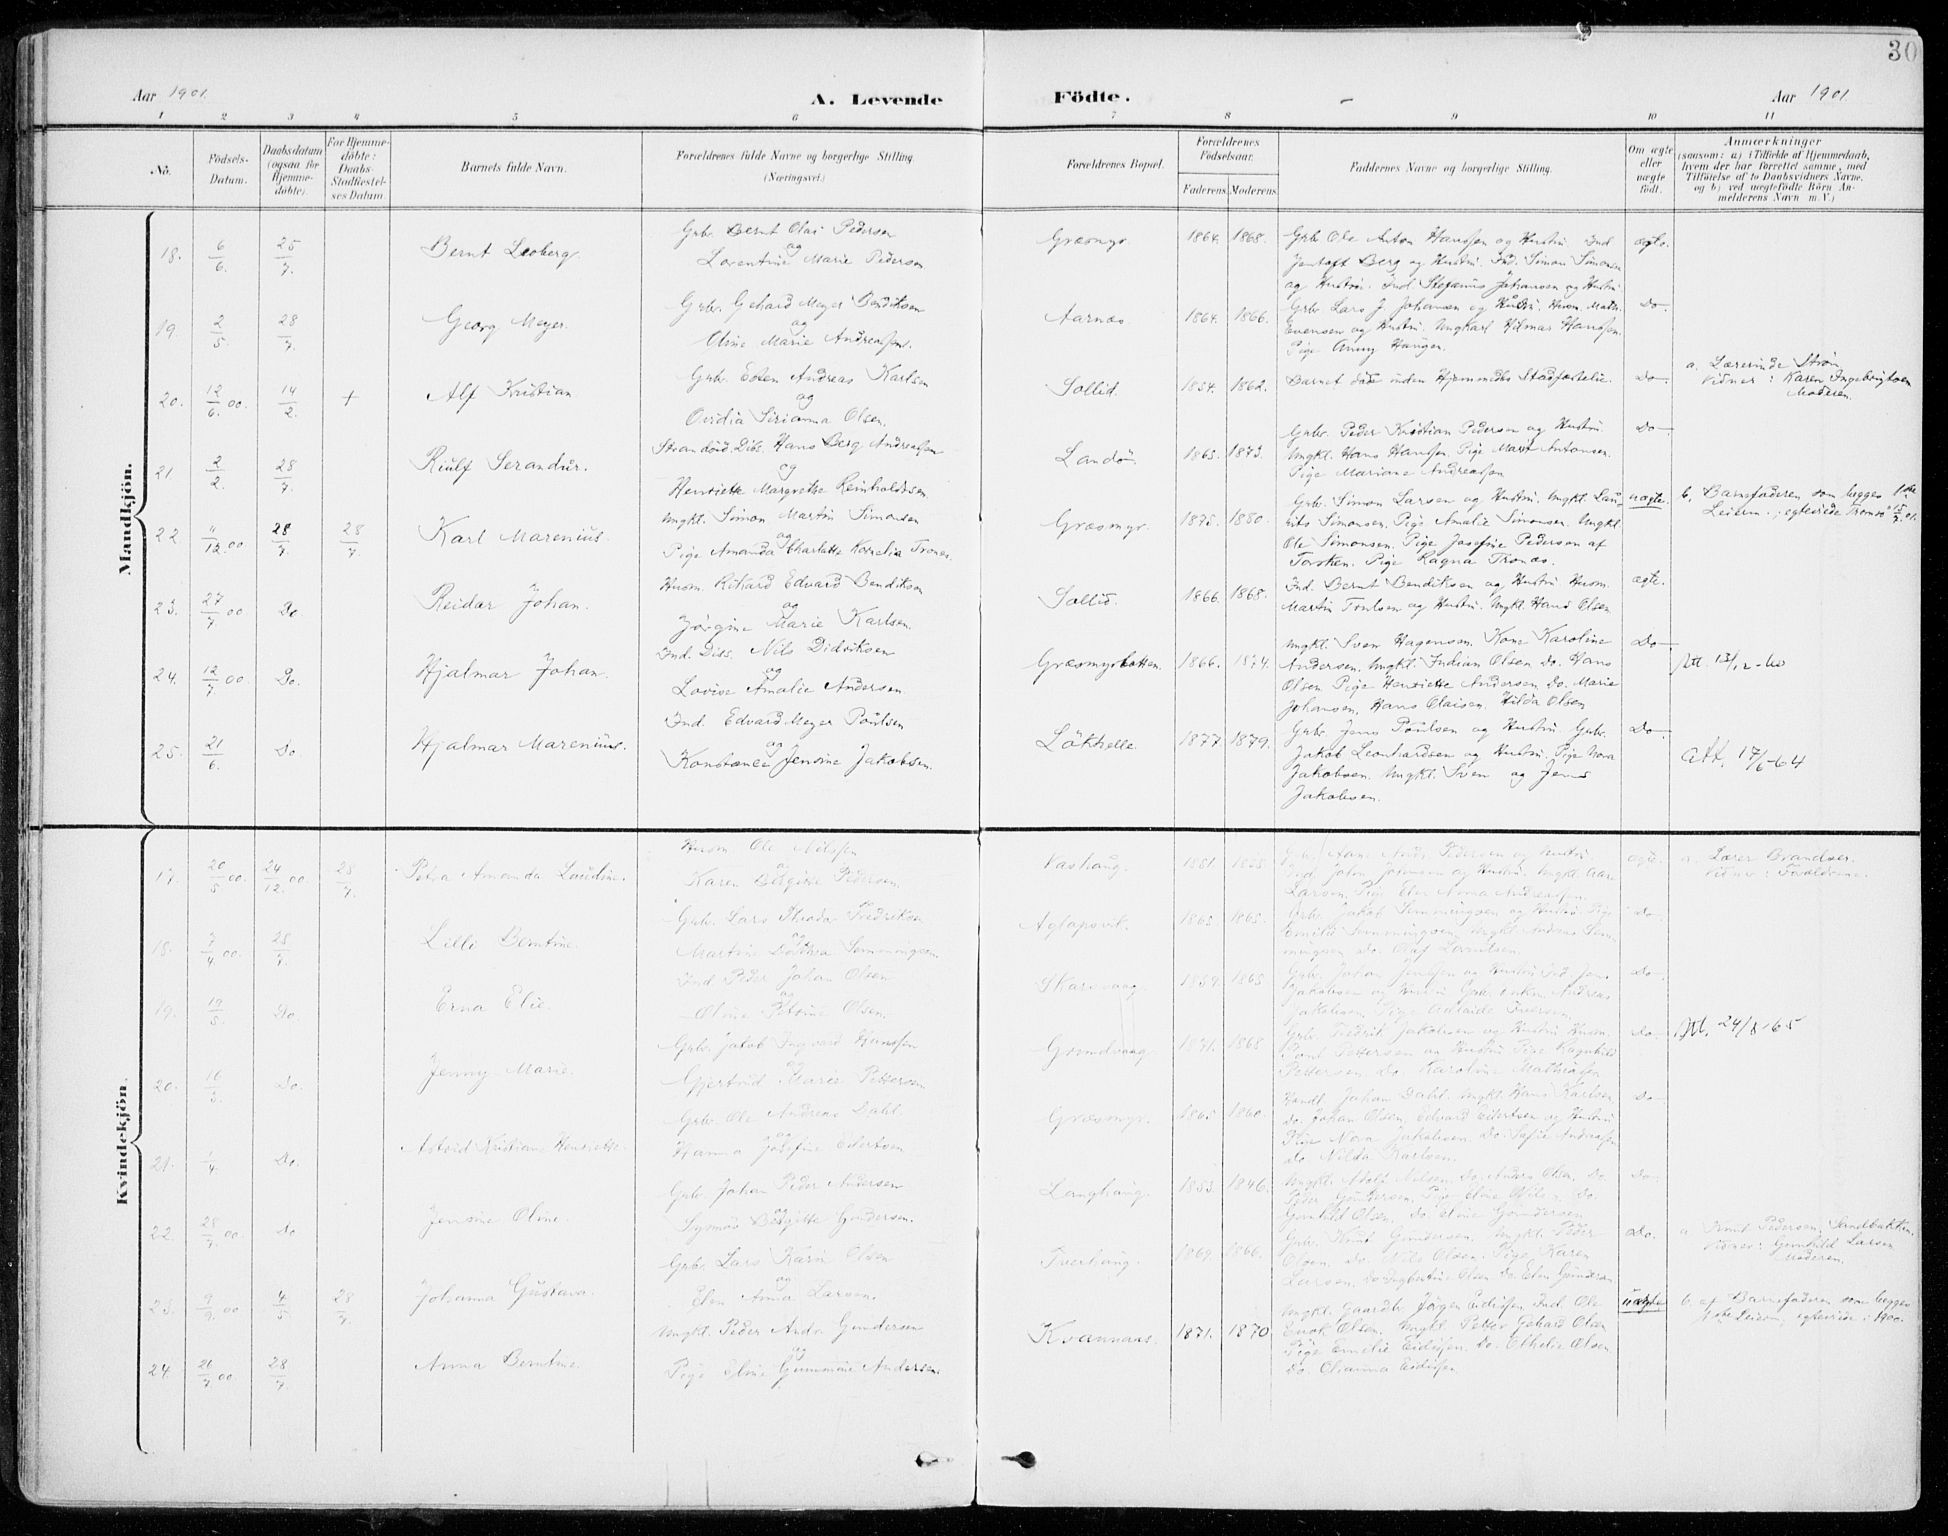 30
Aar 1901.
A. Levende
Födte.
Aar 1901.
1 2 3 4 5 6 7 8 9 10 11
No.
Födsels-
Datum.
Daabsdatum
(ogsaa for
Hjemme-
döbte).
For Hjemme-
döbte:
Daabs-
Stadfæstel-
ses Datum.
Barnets fulde Navn.
Forældrenes fulde Navne og borgerlige Stilling.
(Næringsvei.)
Forældrenes Bopæl.
Forældrenes
Födselsaar.
Faderens. Moderens.
Faddernes Navne og borgerlige Stilling.
Om ægte
eller
uægte
født.
Anmærkninger
(saasom: a) i Tilfælde af Hjemmedaab,
hvem der har forrettet samme, med
Tilföielse af to Daabsvidners Navne.
og b) ved uægtefödte Börn An-
melderens Navn m. V.)
Mandkjön.
18. 6/6. 25/7. Bernt Leoberg.
Grb. Bernt Olai Pedersen
og
Lorentine Marie Pedersen
Græsmyr. 1864. 1868.
Grb Ole Anton Hanssen og Hustru. Ind
Jentoft Berg og Hustru. Ind. Simon Simonsen
og Hustru. Ind. Stefanus Johansen og Hustru
ægte.
19. 2/5. 28/7. Georg Meyer.
Grbr. Gehard Meyer Bendiksen
og
Oline Marie Andreassen.
Aarnæs. 1864. 1866.
Grb. Lars J. Johansen og Hustru. Husm. Math.
Evensen og Hustru. Ungkarl Hilmar Hanssen.
Pige Anny Haugen.
Do
20. 12/6.00. 14/2. + Alf Kristian
Grb. Esten Andreas Karlsen
og
Ovidia Sirianna Olsen.
Sollid. 1854. 1862.
Barnet døde uden Hjemmedbs Stadfæstelse.
Do
a. Lærerinde Strøm
Vidner: Karen Ingebrigtsen
Moderen.
21 2/2. 28/7. Riulf Serandur.
Strandsid. Dibs. Hans Berg Andreassen
og
Henriette Margrethe Reinholdtsen.
Landö. 1865. 1873.
Grbr. Peder Kristian Pedersen og Hustru.
Ungkl. Hans Hanssen. Pige Marit Antonsen.
Pige Mariane Andreassen
Do
22 "/12.00 28/7. 28/7. Karl Marenius.
Ungkl. Simon Martin Simonsen
og
Pige Amanda Charlotte Kornelia Tronæs.
Græsmyr. 1875. 1880.
Grb. Simon Larsen og Hustru. Ungkl. Lau-
rits Simonsen. Pige Amalie Simonsen. Ungkl.
Ole Simonsen. Pige Josefine Pedersen af
Torsken. Pige Ragna Tronæs.
uægte
b. Barnefaderen som begges 1ste
Leierm.; egteviede Tromsø 15/7.01.
23. 27/7 00 Do Reidar Johan.
Husm. Rikard Edvard Bendiksen
og
Jørgine Marie Karlsen.
Sollid. 1866. 1868.
Ind. Bernt Bendiksen og Hustru Husm.
Martin Poulsen og Hustru. Ungkl. Hans Olsen
ægte.
24. 12/7 00. Do. Hjalmar Johan.
Ind. Dibs. Nils Didriksen
og
Lovise Amalie Andersen
Græsmyrbotten. 1866. 1874.
Ungkl. Sven Hagensen. Kone Karoline
Andersen. Ungkl. Indian Olsen do. Hans
Olsen Pige Henriette Andersen. Do. Marie
Johansen. Hans Olaisen. Hilda Olsen
Do
Att. 13/12-40
25. 21/6. Do Hjalmar Marenius.
Ind. Edvard Meyer Poulsen
og
Konstance Jensine Jakobsen.
Lökhelle. 1877. 1879.
Grb. Jens Poulsen og Hustru Grbr.
Jakob Leonhardsen og Hustru Pige Nora
Jakobsen. Ungkl. Sven og Jens
Jakobsen.
Do
Att. 17/6-64
Kvindekjön.
17. 20/5 00. 24/12.00 28/7. Petra Amanda Laudine.
Husm. Ole Nilssen
og
Karen Birgitte Pedersen.
1851.
Pedersen og Hustru.
Larsen. Pige Anna Andreassen.
ægte.
a. Lærer
Vidner: Forældrene.
18. 7/4 00. 28/7. Lilli Berntine.
Grb. Lars Theodor Fredriksen
og
Martine Dorthea Semmingsen
Aglapsvik. 1865. 1865.
Grb. Jakob Semmingsen og Hustru Pige
Emilie Semmingsen. Ungkl Andreas Sem-
mingsen Do. Olaf Larntsen.
Do
19. 19/5. Do. Erna Elie.
Ind Peder Johan Olsen
og
Oline Petrine Olsen.
Skarsvaag. 1859. 1865.
Grb. Johan Jenssen og Hustru Ind. Jens
Jakobsen og Hustru Andreas
Jakobsen. Pige Adelaide Iversen
Do
20. 16/3. Do. Jenny Marie.
Grb. Jakob Ingvard Hanssen
og
Gjertrud Marie Pettersen
Grundvaag. 1871. 1868
Grb. Fredrik Jakobsen og Hustru Husm.
Paul Pettersen og Hustru Pige Ragnhild
Pettersen Do. Karoline Mathisen
Do
Att. 24/8-65
21. 1/4. Do. Astrid Kristiane Henriette.
Grb. Ole Andreas Dahl.
og
Hanna Josefine Eilertsen
Græsmyr. 1865 1860.
Handl. Johan Dahl. Ungkl. Hans Karlsen,
do. Johan Olsen, Edvard Eilertsen og Hustru
Pige Nora Jakobsen. Do. Sofie Andreassen
do Hilda Karlsen.
Do
22. 28/7.00. Do Jensine Oline.
Grb. Johan Peder Andersen
og
Birgitte Gundersen.
Langhaug. 1853. 1846.
Ungkl. Adolf Nilsen. Do. Anders Olsen. Do.
Peder Gundersen. Pige Eline Nilsen. Do.
Gunhild Olsen. Do. Eline Gundersen
Do.
23. 9/9.00 4/5 28/7. Johanna Gustava.
Grb. Lars Karin Olsen
og
Elen Anna Larsen.
Tverhaug. 1869. 1866.
Grb. Knut Gundersen. Ungkl. Peder
Olsen, Do. Nils Olsen. Pige Karen
Larsen. Do Ingbertine Olsen. Do. Elen Gundersen
Do.
a. Knut Pedersen, Sandbakken.
Vidner: Gunhild Larsen
Moderen.
24 21/7 00. 28/7 Anna Berntine.
Ungkl. Peder Andr. Gundersen
og
Pige Eline Gummine Andersen.
Kvannaas. 1871. 1870
Ungkl. Gaardbr. Jørgen Eidissen Ind. Ole
Enok Olsen. Ungkl. Petter Gehard Olsen
Pige Emelie Eidissen. Do. Othelie Olsen.
Do. Olianna Eidissen
uægte
b. af Barnefaderen som begges
1ste Leierm; egteviede i 1900.